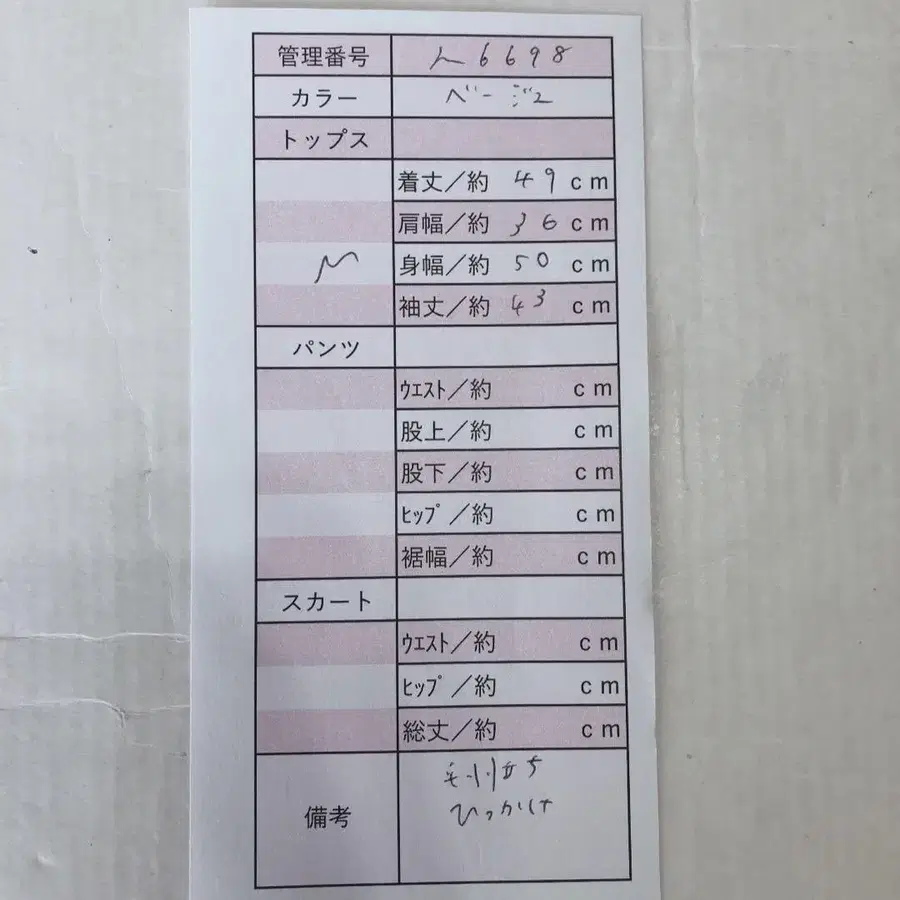 管理番号 ん6698
カラー ベージュ
トップス
着丈/約 49 cm
肩幅/約 36 cm
M 身幅/約 50 cm
袖丈/約 43 cm
パンツ
ウエスト/約 cm
股上/約 cm
股下/約 cm
ヒップ/約 cm
裾幅/約 cm
スカート
ウエスト/約 cm
ヒップ/約 cm
総丈/約 cm
備考
毛羽立ち
ひっかけ